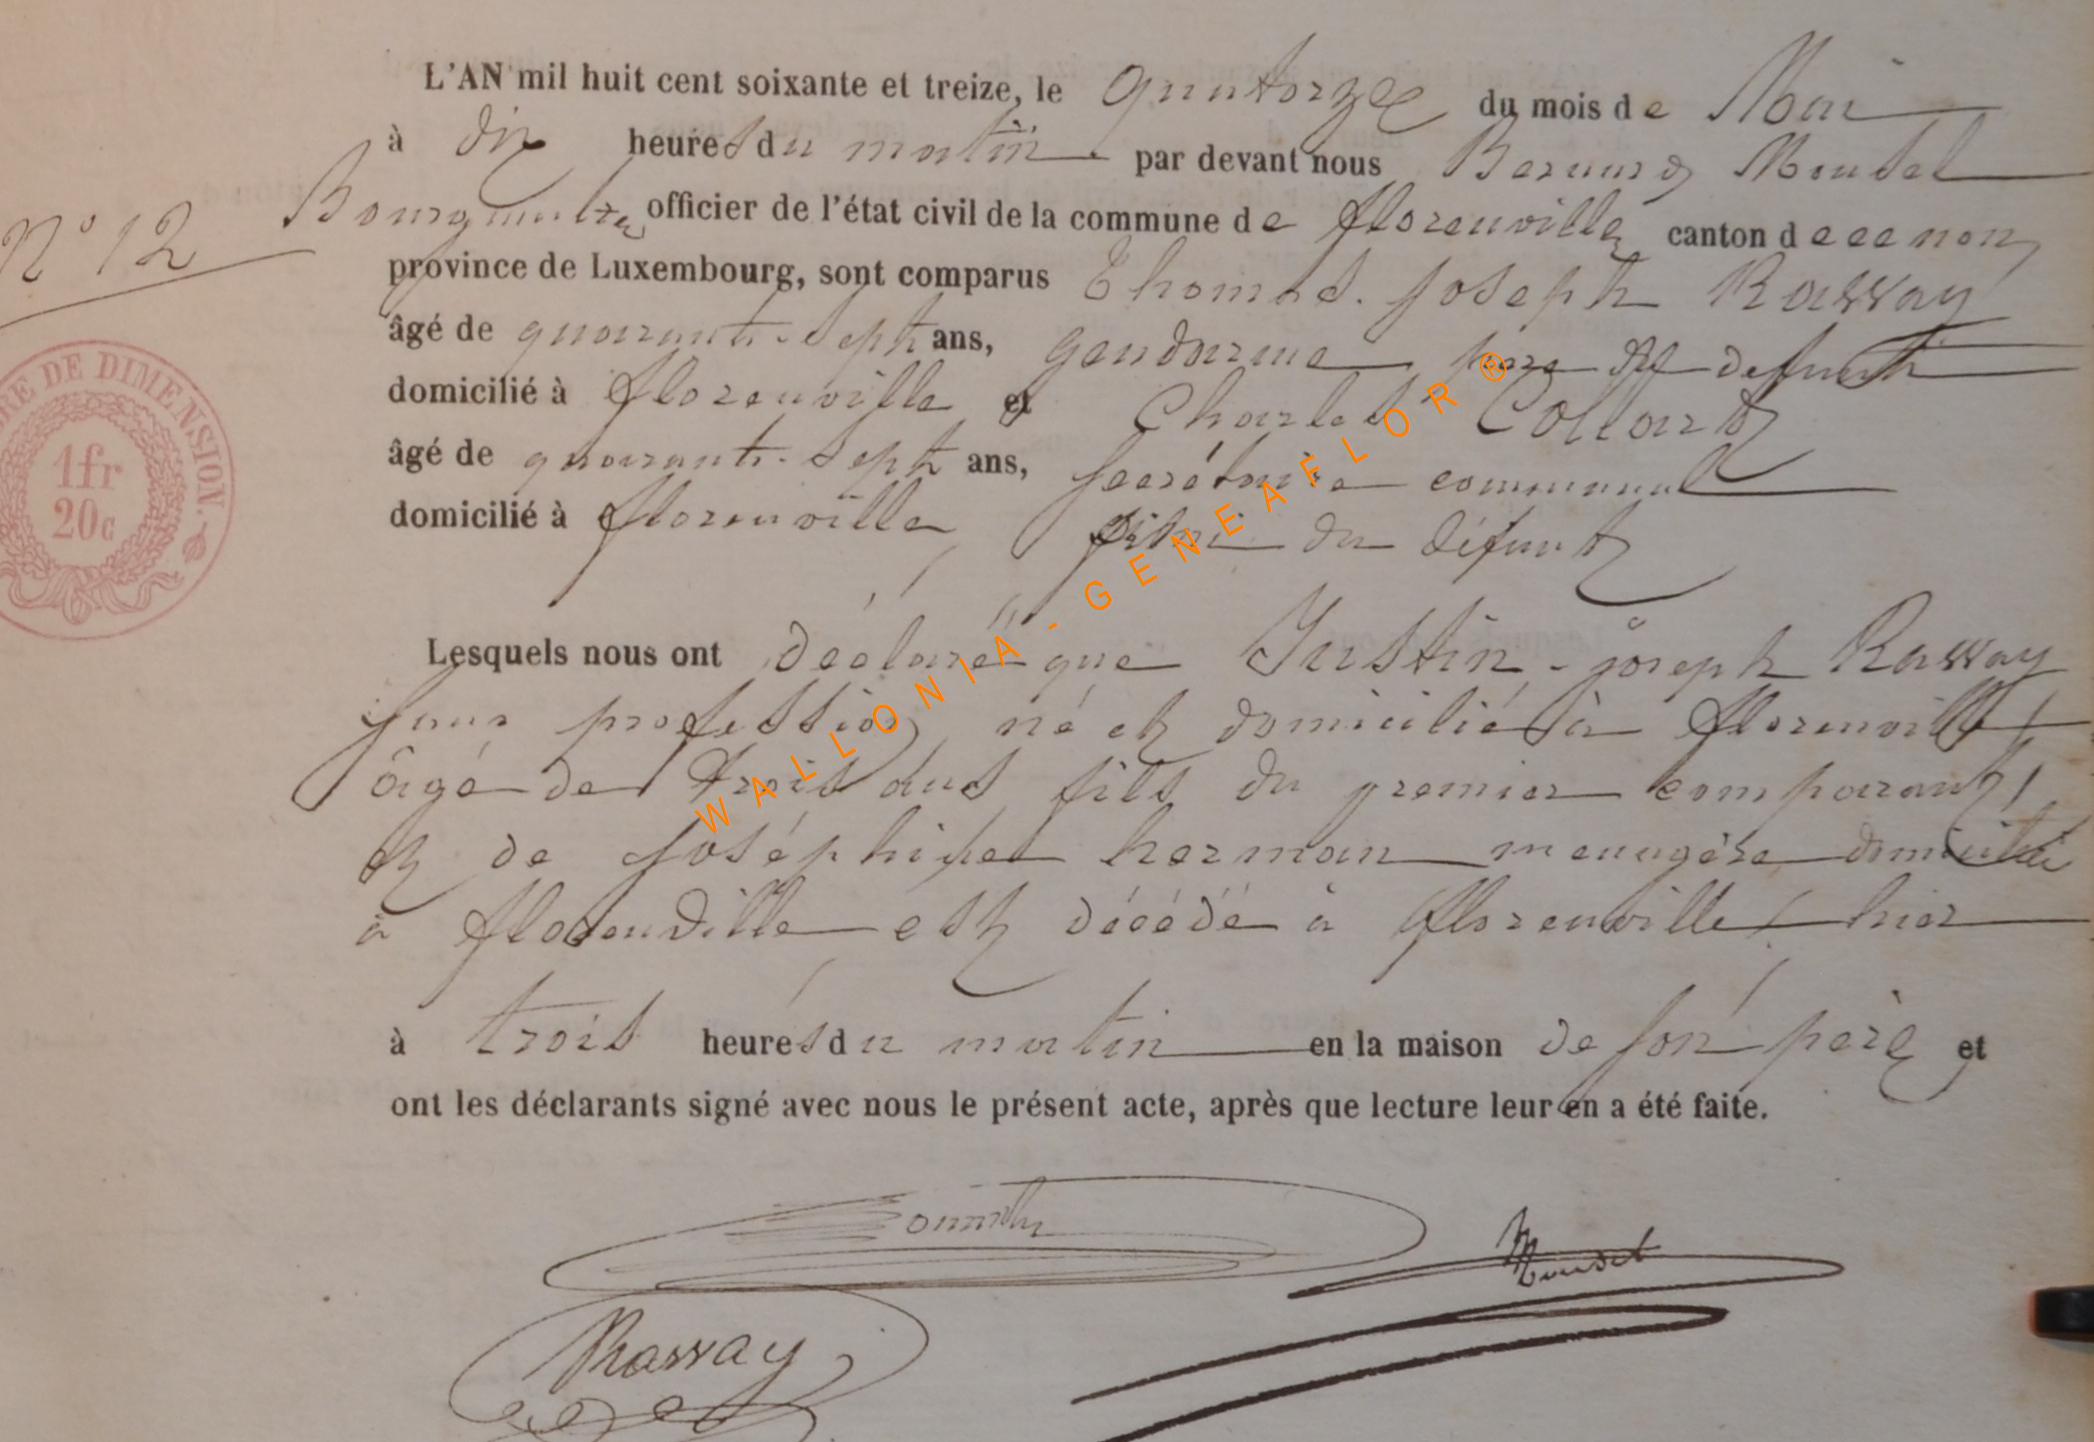 L'AN mil huit cent soixante et treize, le quatorze du mois de Mai
à dix heures du matin par devant nous Bernard Moudel
N° 12 Bourgmestre officier de l'état civil de la commune de florenville canton de ce nom
province de Luxembourg, sont comparus Thomas. joseph Rassay
âgé de quarante-sept ans, gendarme père de defunt
domicilié à florenville et Charles Collart
âgé de quarante-sept ans, secrétaire communal
domicilié à florenville du défunt
Lesquels nous ont déclaré que Justin-joseph Rassay
sans profession né et domicilié à florenville
âgé de trois ans fils du premier comparant
et de joséphine herman menagère domiciliée
à florenville est décédé à florenville hier
à trois heures du matin en la maison de son père et
ont les déclarants signé avec nous le présent acte, après que lecture leur en a été faite.
Moudel
Rassay
RE DE DIMENSION.
1fr
20c
WALLONIA-GENEAFLOR®